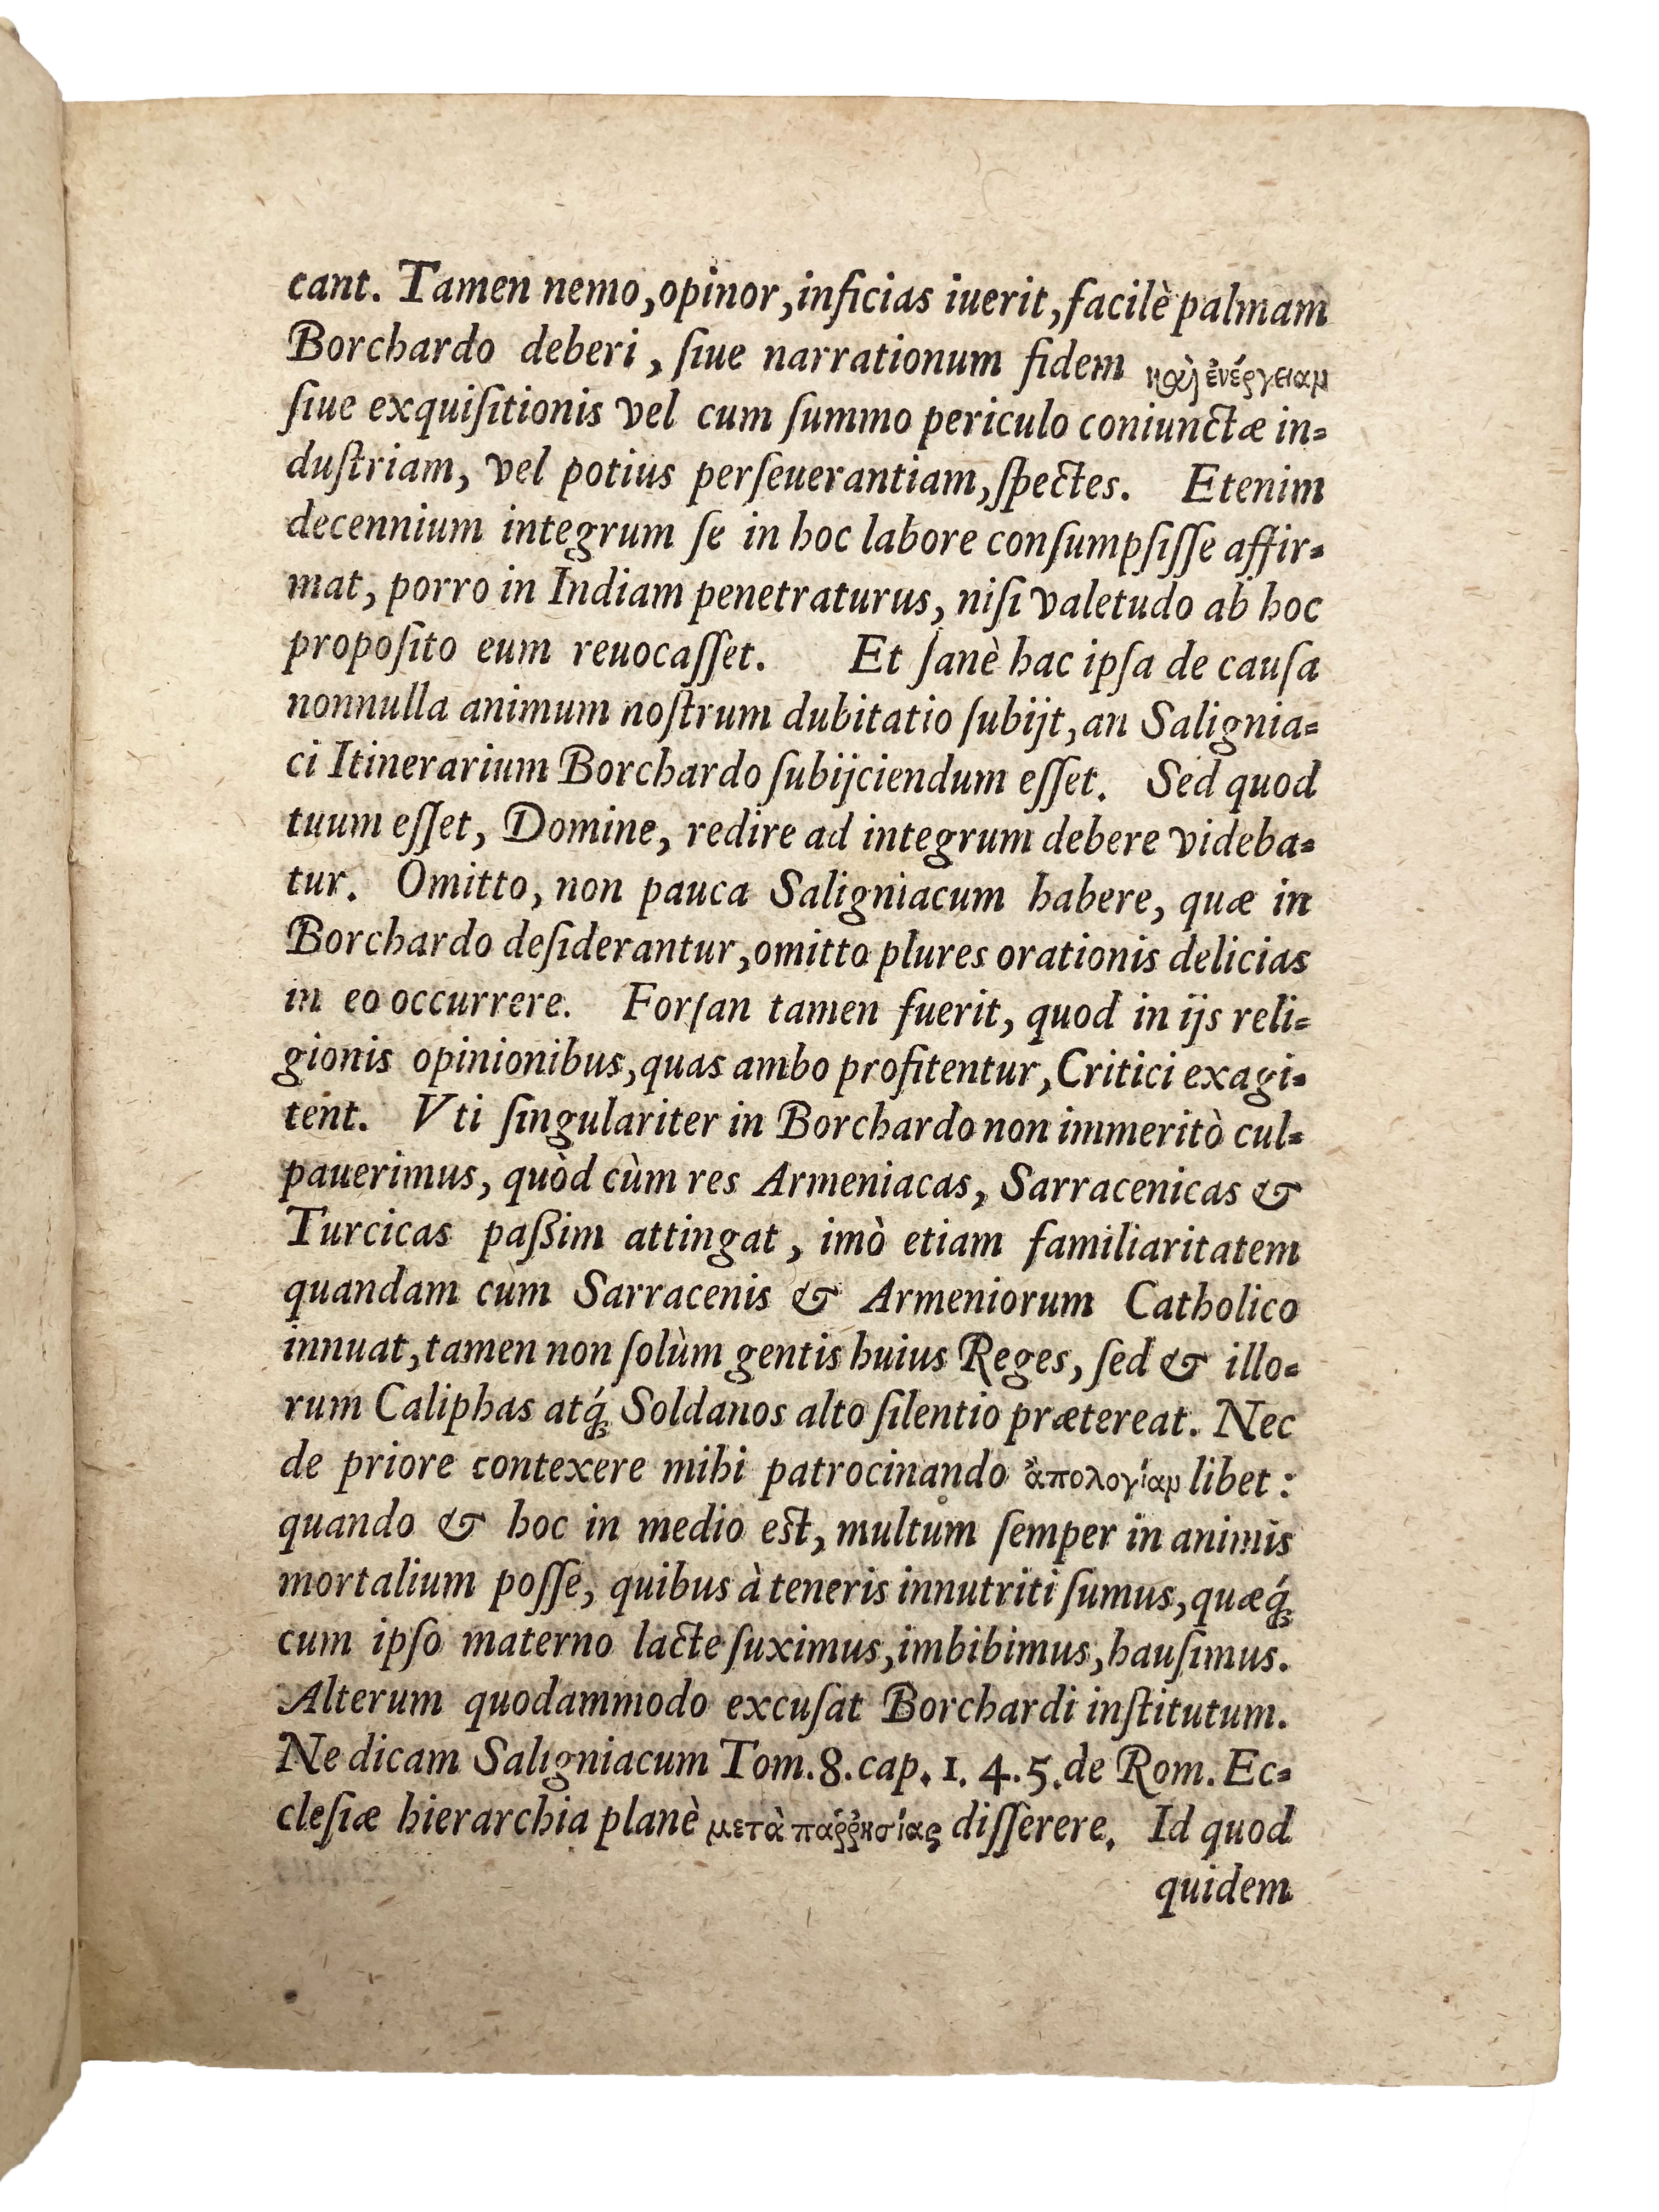 cant. Tamen nemo, opinor, inficias iuerit, facilè palmam
Borchardo deberi, ſiue narrationum fidem καὶ ἐνέργειαμ
ſiue exquiſitionis vel cum ſummo periculo coniunctæ in=
duſtriam, vel potius perſeuerantiam, ſpectes. Etenim
decennium integrum ſe in hoc labore conſumpſiſſe affir=
mat, porro in Indiam penetraturus, niſi valetudo ab hoc
propoſito eum reuocaſſet. Et ſanè hac ipſa de cauſa
nonnulla animum noſtrum dubitatio ſubijt, an Salignia=
ci Itinerarium Borchardo ſubijciendum eſſet. Sed quod
tuum eſſet, Domine, redire ad integrum debere videba=
tur. Omitto, non pauca Saligniacum habere, quæ in
Borchardo deſiderantur, omitto plures orationis delicias
in eo occurrere. Forſan tamen fuerit, quod in ijs reli=
gionis opinionibus, quas ambo profitentur, Critici exagi=
tent. Vti ſingulariter in Borchardo non immeritò cul=
pauerimus, quòd cùm res Armeniacas, Sarracenicas &
Turcicas paßim attingat, imò etiam familiaritatem
quandam cùm Sarracenis & Armeniorum Catholico
innuat, tamen non ſolùm gentis huius Reges, ſed & illo=
rum Caliphas atq́; Soldanos alto ſilentio prætereat. Nec
de priore contexere mihi patrocinando ἀπολογίαμ libet:
quando & hoc in medio eſt, multùm ſemper in animis
mortalium poſſe, quibus à teneris innutriti ſumus, quæq́;
cum ipſo materno lacte ſuximus, imbibimus, hauſimus.
Alterum quodammodo excuſat Borchardi inſtitutum.
Ne dicam Saligniacum Tom. 8. cap. 1. 4. 5. de Rom. Ec=
cleſiæ hierarchia planè μετὰ παῤῥησίας diſſerere. Id quod
quidem